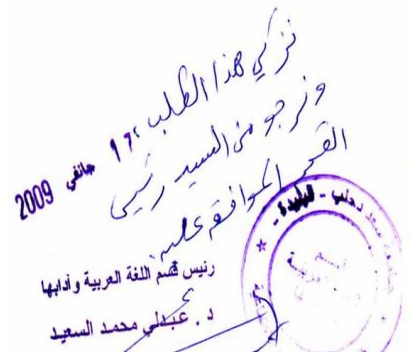 نزكي هذا الطلب
17 جانفي 2009
ونرجو من السيد رئيس
القسم الموافقة عليه
رئيس قسم اللغة العربية وآدابها
د. عبدلي محمد السعيد
جامعة سعد دحلب - البليدة -